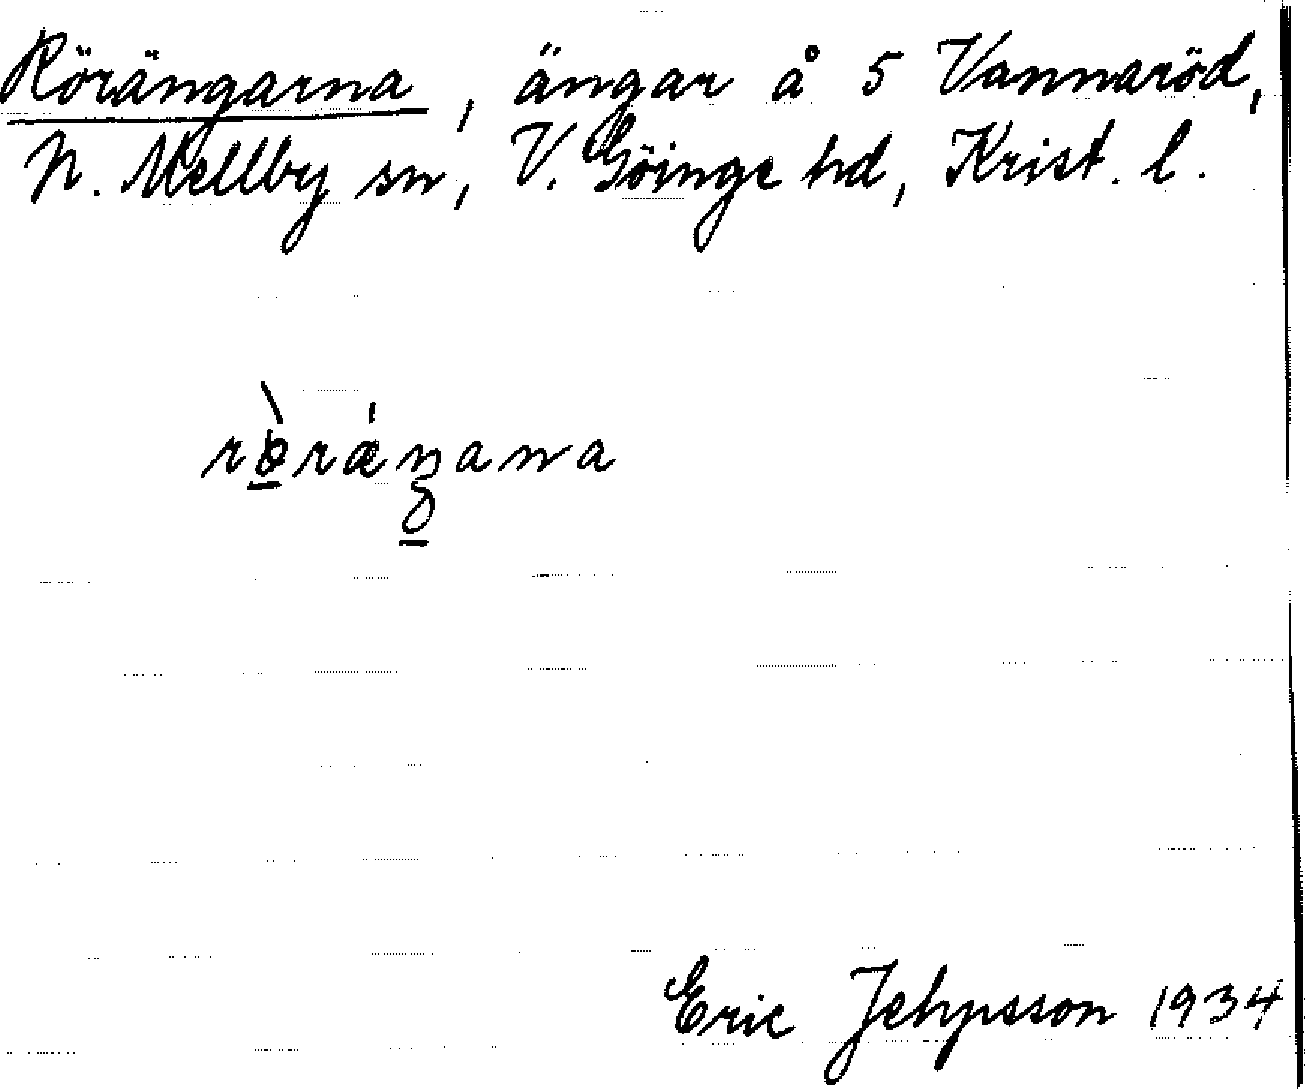 Rörängarna, ängar å 5 Vannaröd,
N. Mellby sn, V. Göinge hd, Krist. l.
rø̀ræ´ŋana
Eric Jehpsson 1934